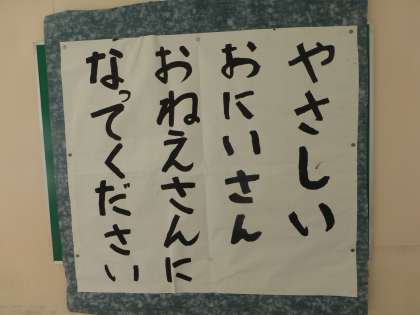 やさしい
おにいさん
おねえさんに
なってください